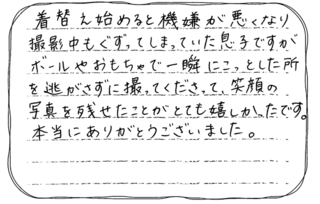 着替え始めると機嫌が悪くなり
撮影中もぐずってしまっていた息子ですが
ボールやおもちゃで一瞬にこっとした所
を逃がさずに撮ってくださって、笑顔の
写真を残せたことがとても嬉しかったです。
本当にありがとうございました。